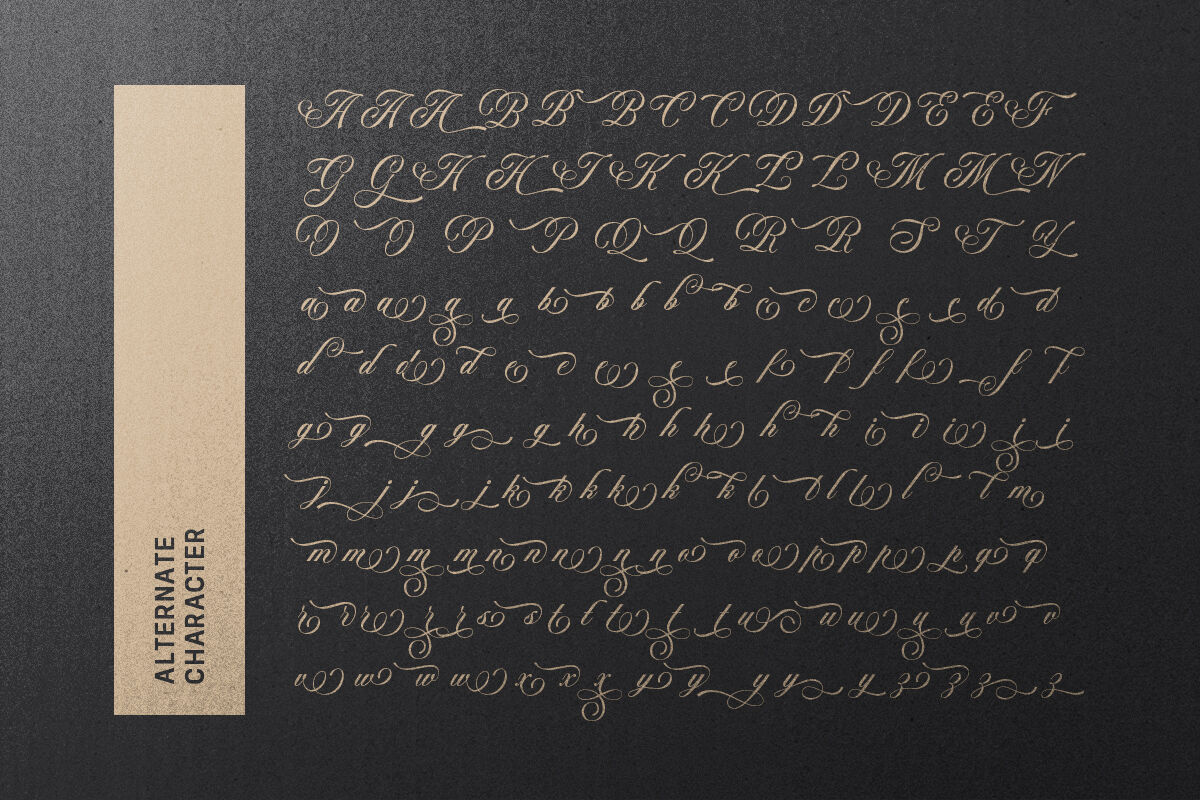 ALTERNATE
CHARACTER
A A A B B B C C D D D E E F
G G H H I K K L L M M N
O O P P Q Q R R S T Y
a a a a a b b b b b c c c c c d d
d d d d e e e e e f f f f f f
g g g g g h h h h h h i i i i i
j j j j k k k k k k l l l l l m
m m m m n n n n n o o o p p p p q q
r r r r r s s t t t t t u u u u u v v
v w w w x x x y y y y y z z z z